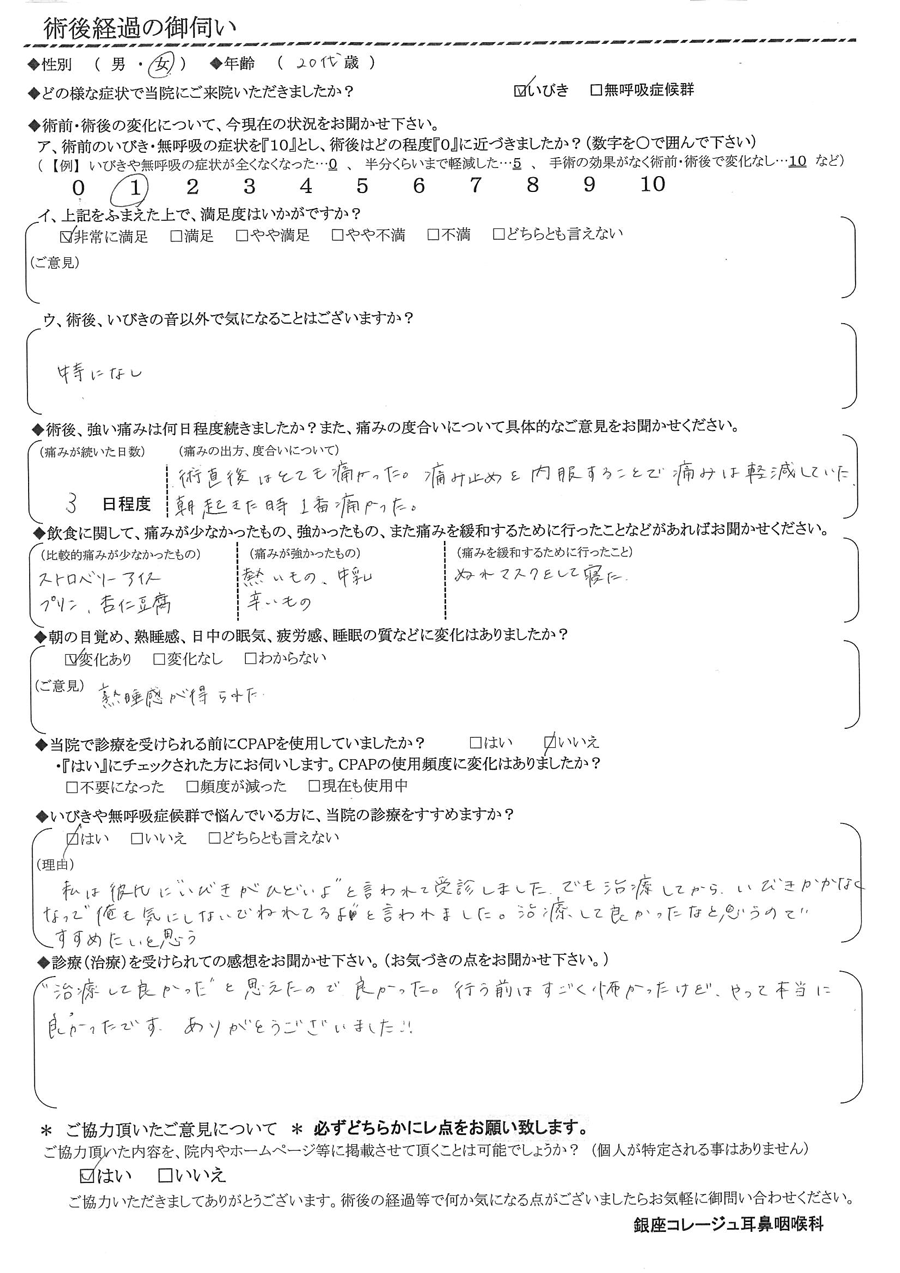 術後経過の御伺い
◆性別 ( 男 ・ 女 ) ◆年齢 ( 20代 歳 )
◆どの様な症状で当院にご来院いただきましたか? ☑いびき □無呼吸症候群
◆術前・術後の変化について、今現在の状況をお聞かせ下さい。
ア、術前のいびき・無呼吸の症状を『10』とし、術後はどの程度『0』に近づきましたか?(数字を〇で囲んで下さい)
(【例】いびきや無呼吸の症状が全くなくなった…0 、 半分くらいまで軽減した…5 、 手術の効果がなく術前・術後で変化なし…10 など)
0 1 2 3 4 5 6 7 8 9 10
イ、上記をふまえた上で、満足度はいかがですか?
☑非常に満足 □満足 □やや満足 □やや不満 □不満 □どちらとも言えない
(ご意見)
ウ、術後、いびきの音以外で気になることはございますか?
特になし
◆術後、強い痛みは何日程度続きましたか?また、痛みの度合いについて具体的なご意見をお聞かせください。
(痛みが続いた日数) (痛みの出方、度合いについて)
術直後はとても痛かった。痛み止めを内服することで痛みは軽減していた
3 日程度 朝起きた時1番痛かった。
◆飲食に関して、痛みが少なかったもの、強かったもの、また痛みを緩和するために行ったことなどがあればお聞かせください。
(比較的痛みが少なかったもの) (痛みが強かったもの) (痛みを緩和するために行ったこと)
ストロベリーアイス 熱いもの、牛乳 ぬれマスクをして寝た
プリン、杏仁豆腐 辛いもの
◆朝の目覚め、熟睡感、日中の眠気、疲労感、睡眠の質などに変化はありましたか?
☑変化あり □変化なし □わからない
(ご意見) 熟睡感が得られた
◆当院で診療を受けられる前にCPAPを使用していましたか? □はい ☑いいえ
・『はい』にチェックされた方にお伺いします。CPAPの使用頻度に変化はありましたか?
□不要になった □頻度が減った □現在も使用中
◆いびきや無呼吸症候群で悩んでいる方に、当院の診療をすすめますか?
☑はい □いいえ □どちらとも言えない
(理由)
私は彼氏に"いびきがひどいよ"と言われて受診しました。でも治療してから、いびきかかなく
なって"俺も気にしないでねれてるよ"と言われました。治療して良かったなと思うので
すすめたいと思う
◆診療(治療)を受けられての感想をお聞かせ下さい。(お気づきの点をお聞かせ下さい。)
"治療して良かった"と思えたので良かった。行う前はすごく怖かったけど、やって本当に
良かったです。ありがとうございました!!
＊ ご協力頂いたご意見について ＊ 必ずどちらかにレ点をお願い致します。
ご協力頂いた内容を、院内やホームページ等に掲載させて頂くことは可能でしょうか? (個人が特定される事はありません)
☑はい □いいえ
ご協力いただきましてありがとうございます。術後の経過等で何か気になる点がございましたらお気軽に御問い合わせください。
銀座コレージュ耳鼻咽喉科